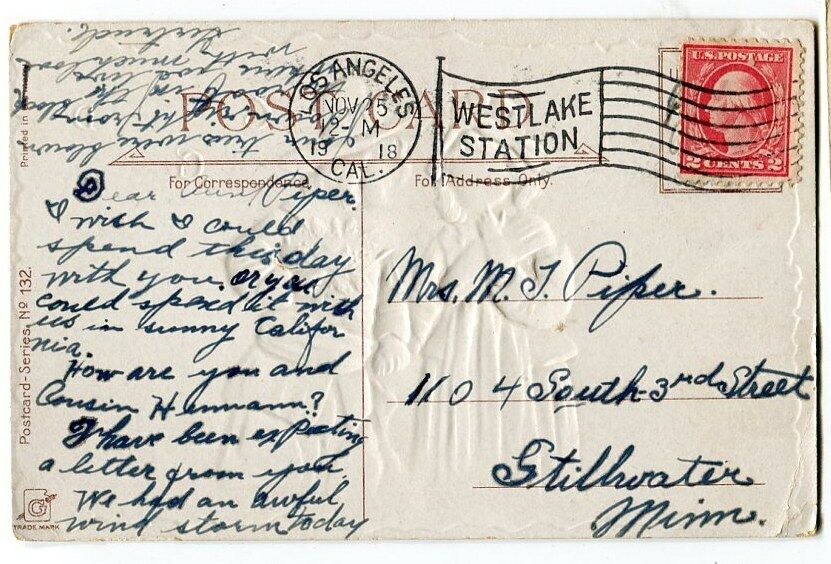 POST CARD
For Correspondence.
For Address Only.
LOS ANGELES
NOV 25
12-M
19 18
CAL.
WESTLAKE
STATION
U.S. POSTAGE
2 CENTS 2
Printed in
Postcard-Series. No 132.
TRADE MARK
Dear Aunt Piper.
I wish I could
spend this day
with you, or you
could spend it with
us in sunny Califor
nia.
How are you and
Cousin Hermann?
I have been expecting
a letter from you.
We had an awful
wind storm today
trees were blown
right
and the
with much love
Gertrude.
Mrs. M. J. Piper.
1104 South-3rd Street
Stillwater
Minn.